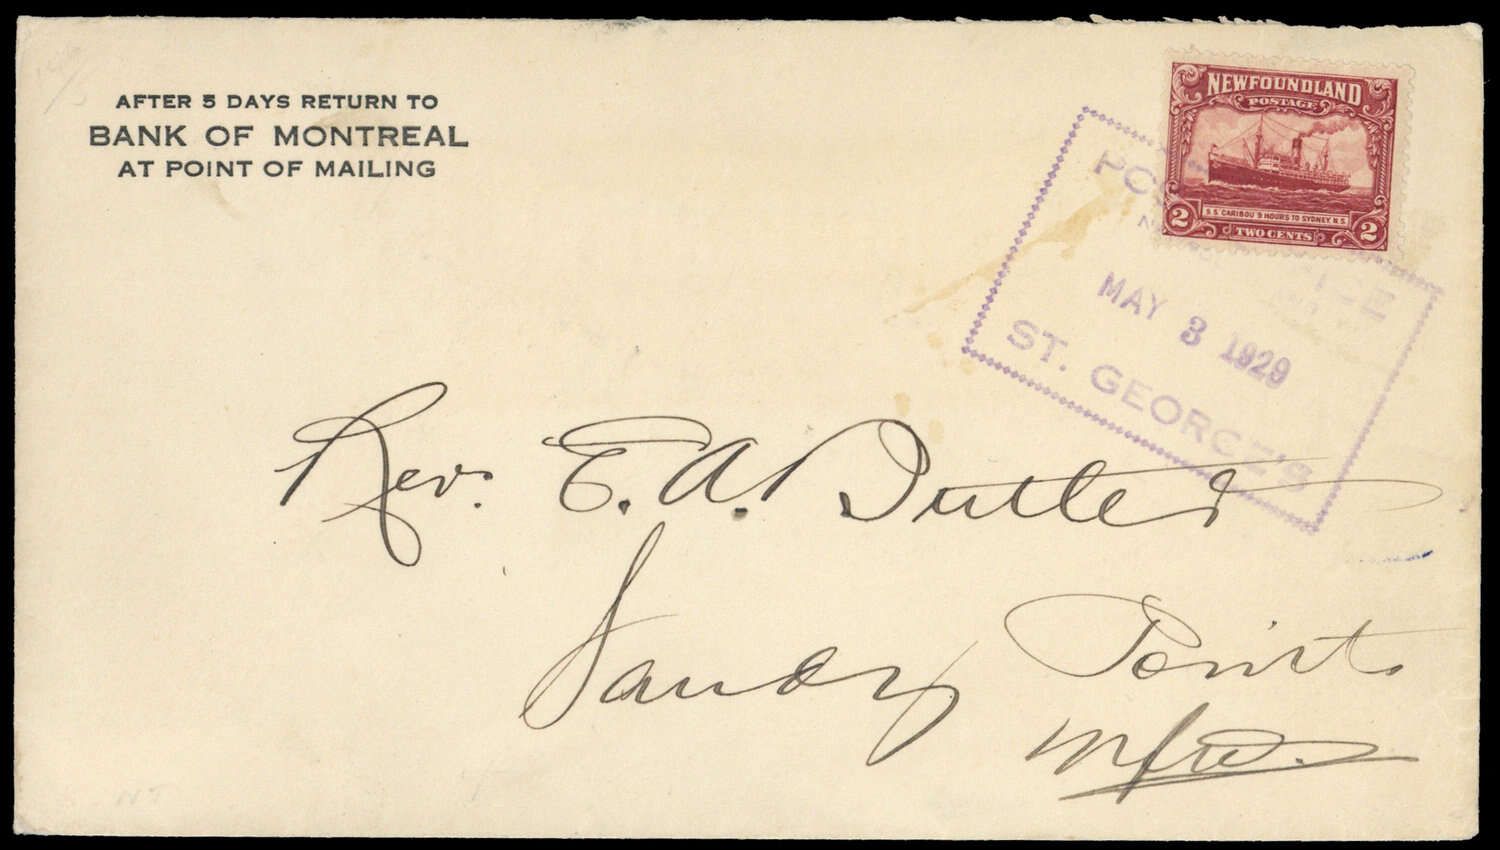 AFTER 5 DAYS RETURN TO
BANK OF MONTREAL
AT POINT OF MAILING
NEWFOUNDLAND
POSTAGE
S.S. CARIBOU 9 HOURS TO SYDNEY, N.S.
2 TWO CENTS 2
POST OFFICE
MAY 3 1929
ST. GEORGE'S
Rev. E. A. Butler
Sandy Point
Nfld.